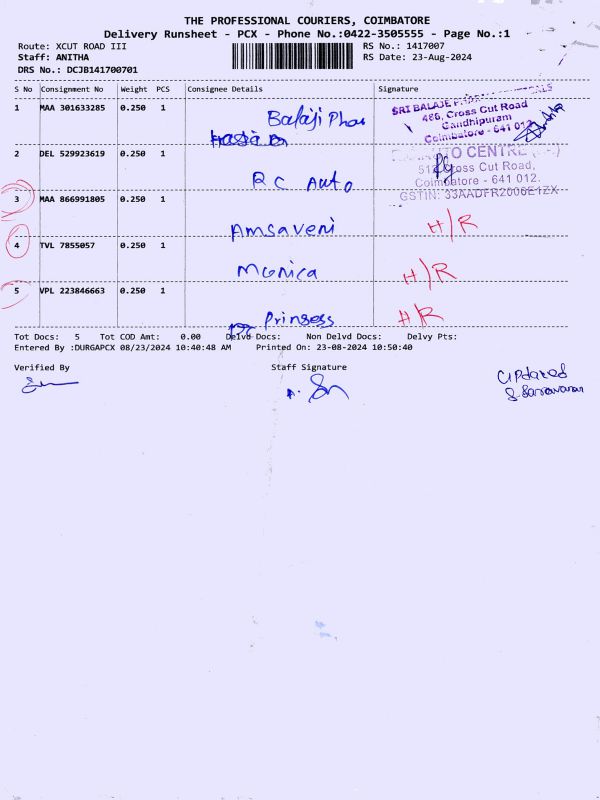 THE PROFESSIONAL COURIERS, COIMBATORE
Delivery Runsheet - PCX - Phone No.:0422-3505555 - Page No.:1
Route: XCUT ROAD III
RS No.: 1417007
Staff: ANITHA
RS Date: 23-Aug-2024
DRS No.: DCJB141700701
S No Consignment No Weight PCS Consignee Details Signature
1 MAA 301633285 0.250 1 Balaji Phar
SRI BALAJE
486, Cross Cut Road
Gandhipuram
Coimbatore - 641 012
2 DEL 529923619 0.250 1 RC Auto
AUTO CENTRE
512 Cross Cut Road,
Coimbatore - 641 012.
GSTIN: 33AADFR2006E1ZX
3 MAA 866991805 0.250 1 Amsaveni H/R
4 TVL 7855057 0.250 1 Monica H/R
5 VPL 223846663 0.250 1 Prinsess H/R
Tot Docs: 5 Tot COD Amt: 0.00 Delvd Docs: Non Delvd Docs: Delvy Pts:
Entered By :DURGAPCX 08/23/2024 10:40:48 AM Printed On: 23-08-2024 10:50:40
Verified By Staff Signature
Updated
S. Saravanan